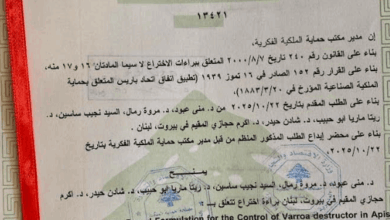 ١٣٤٢١
إن مدير مكتب حماية الملكية الفكرية،
بناء على القانون رقم ٢٤٠ تاريخ ٢٠٠٠/٨/٧ المتعلق ببراءات الاختراع لا سيما المادتان ١٦ و١٧ منه،
بناء على القرار رقم ١٥٢ الصادر في ١٦ تموز ١٩٣٩ (تطبيق اتفاق اتحاد باريس المتعلق بحماية
الملكية الصناعية المؤرخ في ١٨٨٣/٣/٢٠)،
بناء على الطلب المقدم بتاريخ ٢٠٢٥/١٠/٢٢ من د. منى عبود، د. مروة رمال، السيد نجيب ساسين، د.
ريتا ماريا ابو حبيب، د. شادن حيدر، د. اكرم حجازي المقيم في بيروت، لبنان .
بناء على محضر إيداع الطلب المذكور المنظم من قبل مدير مكتب حماية الملكية الفكرية بتاريخ
٢٠٢٥/١٠/٢٢
يمنح
د. منى عبود، د. مروة رمال، السيد نجيب ساسين، د. ريتا ماريا ابو حبيب، د. شادن حيدر، د. اكرم
حجازي المقيم في بيروت، لبنان براءة اختراع تتعلق بـ
Formulation for the Control of Varroa destructor in Api